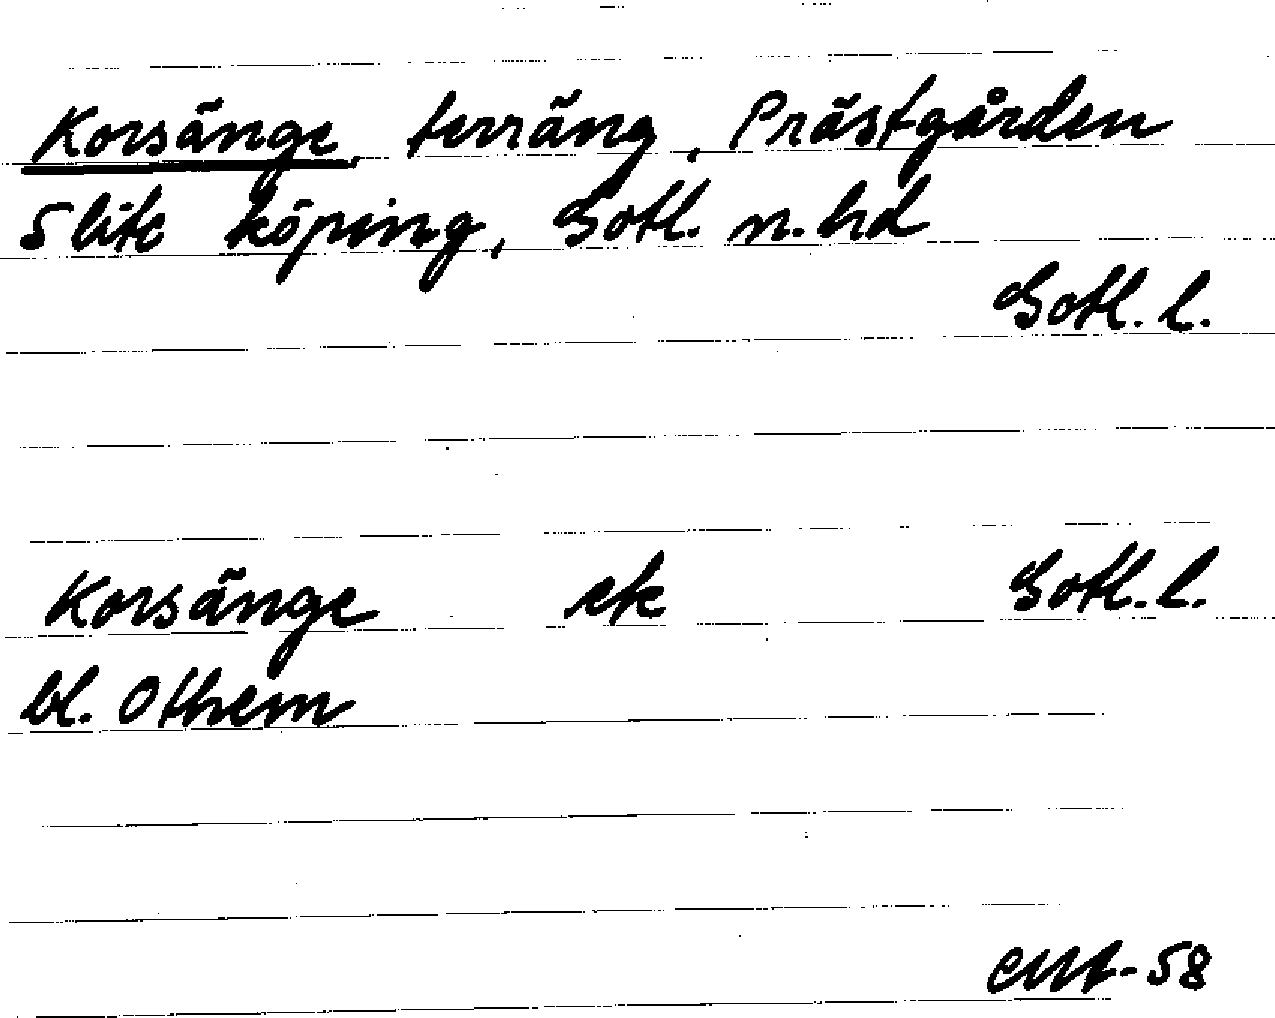 Korsänge, terräng, Prästgården
Slite köping, Gotl. n. hd
Gotl. l.
Korsänge ek Gotl. l.
bl. Othem
-58